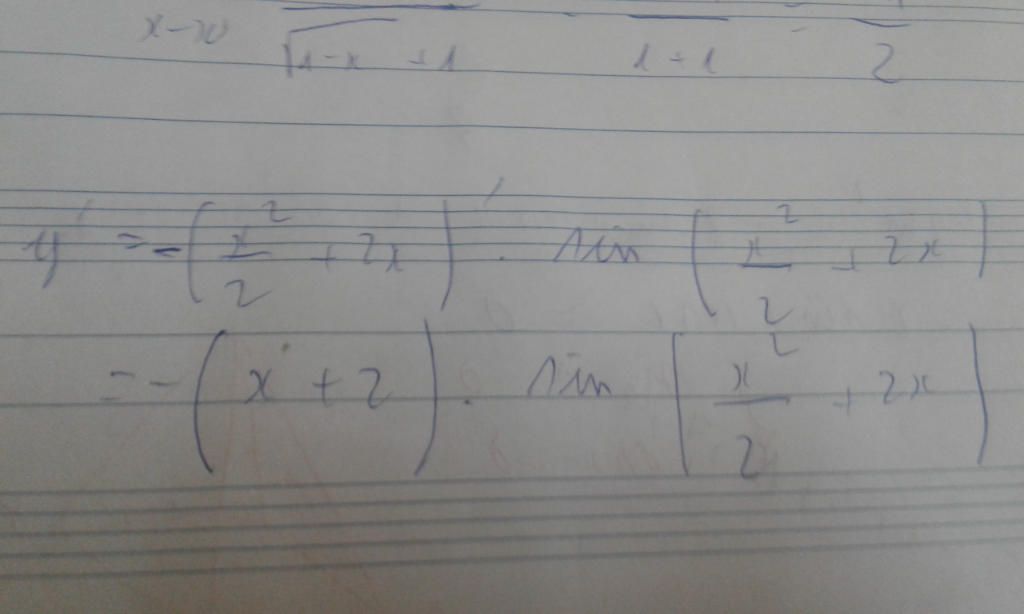 x→0 √1-x + 1 1 + 1 = 2
y' = -(x²/2 + 2x)' . sin (x²/2 + 2x)
= - (x + 2) . sin (x²/2 + 2x)